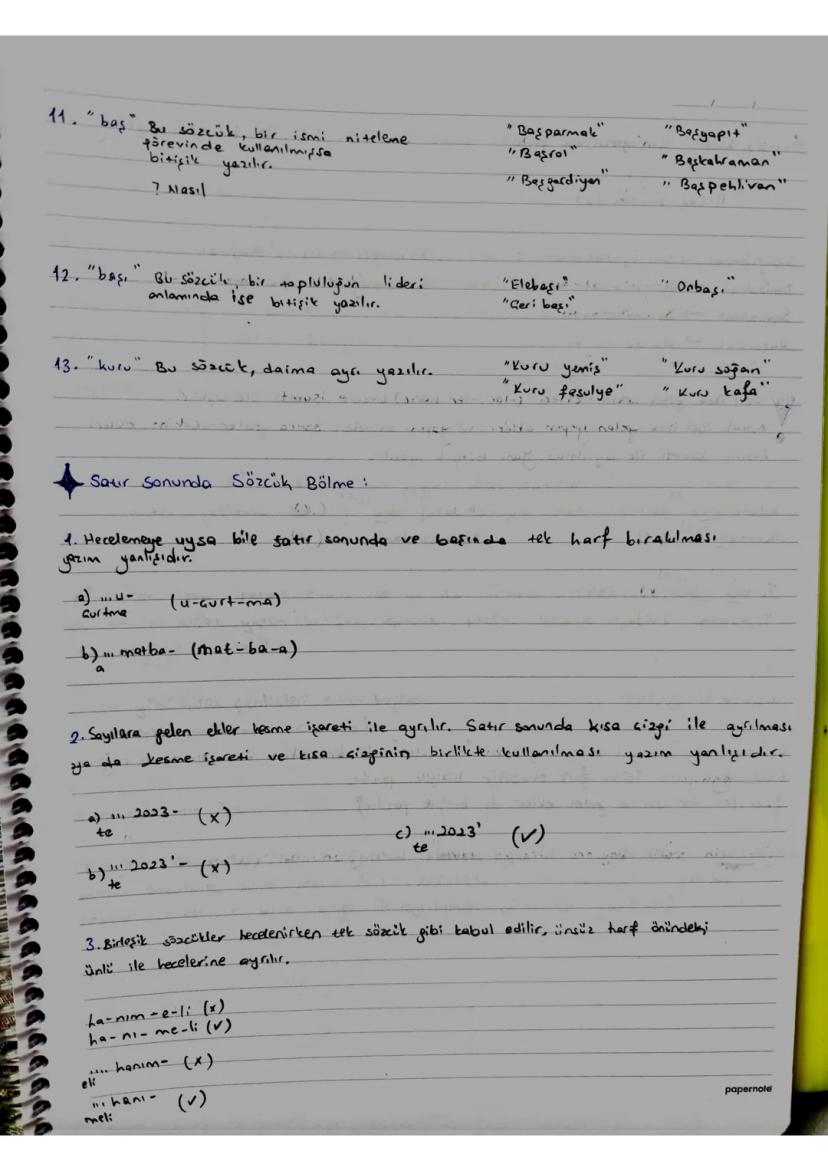 11. "baş" Bu sözcük, bir ismi niteleme "Başparmak" "Başyapıt"
görevinde kullanılmışsa "Başrol" "Başkahraman"
bitişik yazılır. "Başgardiyan" "Başpehlivan"
? Nasıl
12. "başı" Bu sözcük, bir topluluğun lideri "Elebaşı" "Onbaşı"
anlamında ise bitişik yazılır. "Çeri başı"
13. "kuru" Bu sözcük, daima ayrı yazılır. "Kuru yemiş" "Kuru soğan"
"Kuru fasulye" "Kuru kafa"
Satır Sonunda Sözcük Bölme :
1. Hecelemeye uysa bile satır sonunda ve başında tek harf bırakılması
yazım yanlışıdır.
a) ... u- (u-çurt-ma)
çurtma
b) ... matba- (mat-ba-a)
a
2. Sayılara gelen ekler kesme işareti ile ayrılır. Satır sonunda kısa çizgi ile ayrılması
ya da kesme işareti ve kısa çizginin birlikte kullanılması yazım yanlışıdır.
a) ... 2023- (x)
te
c) ... 2023' (✓)
te
b) ... 2023'- (x)
te
3. Birleşik sözcükler hecelenirken tek sözcük gibi kabul edilir, ünsüz harf önündeki
ünlü ile hecelerine ayrılır.
ha-nım-e-li (x)
ha-nı-me-li (✓)
.... hanım- (x)
eli
... hanı- (✓)
meli
papernote